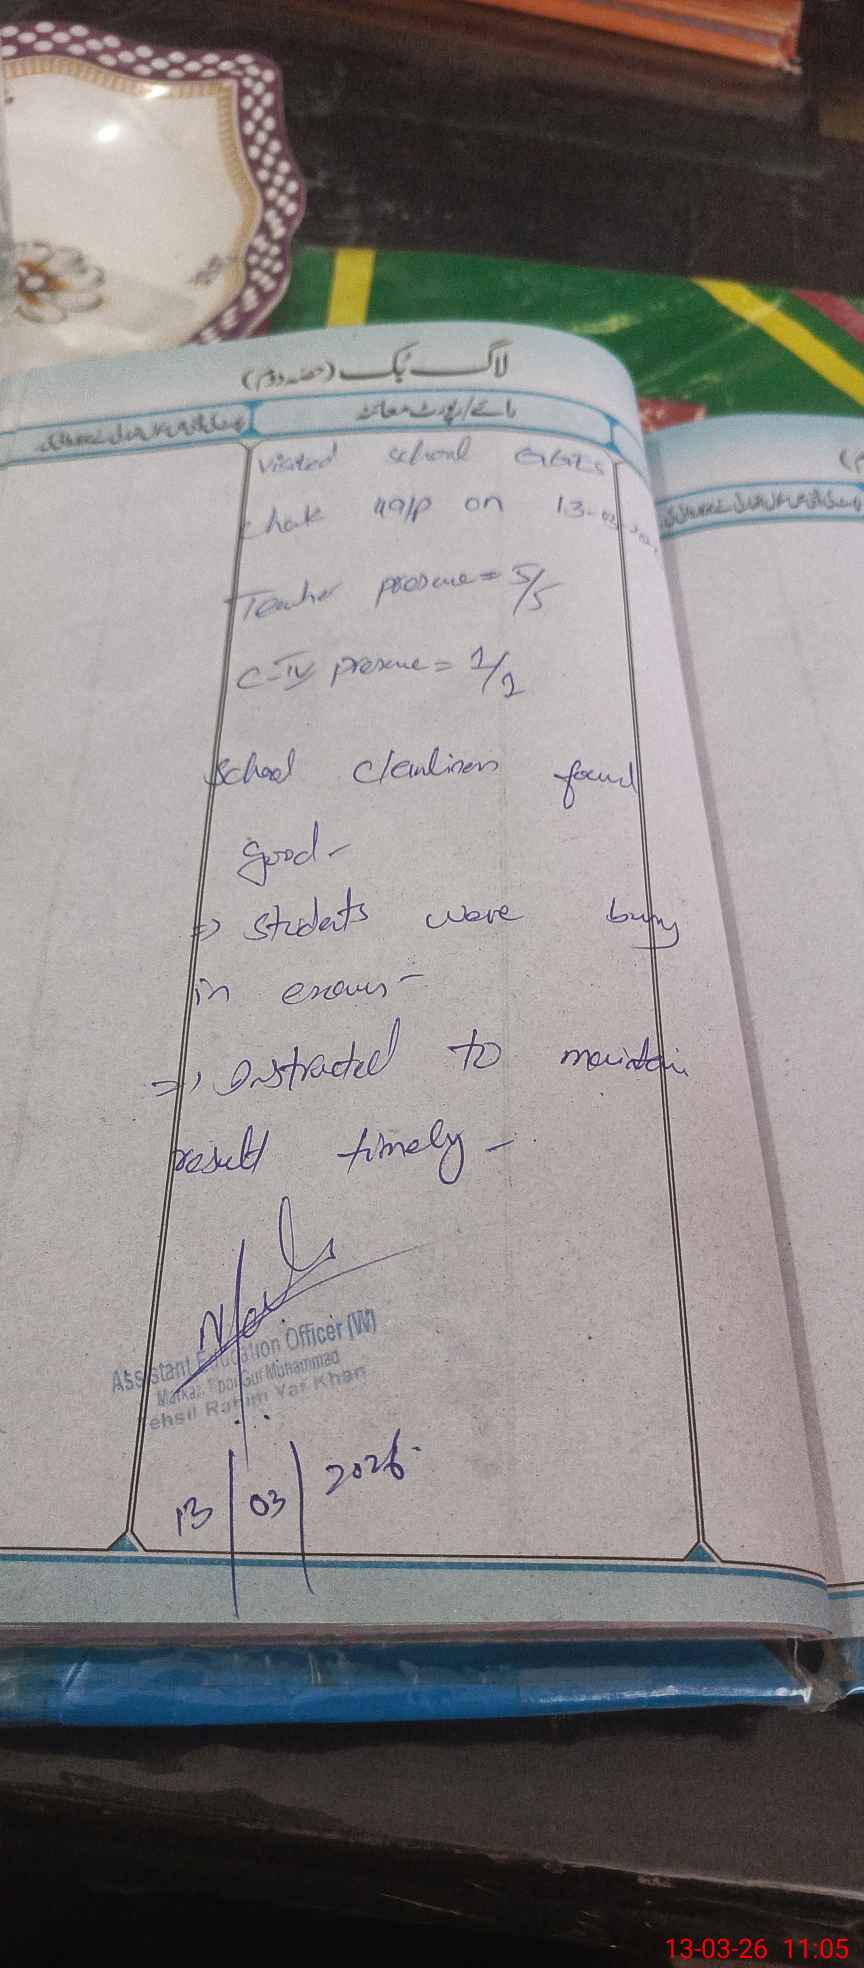 لاگ بُک (حصہ دوم)
رائے/رپورٹ معائنہ
Visited school GGES
chak 119/P on 13-03-202
Teacher presence = 5/5
C-IV presence = 1/1
School cleanliness found
good-
=> students were busy
in exams-
=> Instructed to maintain
result timely-
Assistant Education Officer (W)
Markaz, Muhammad
Tehsil Rahim Yar Khan
13/03/2026
13-03-26 11:05